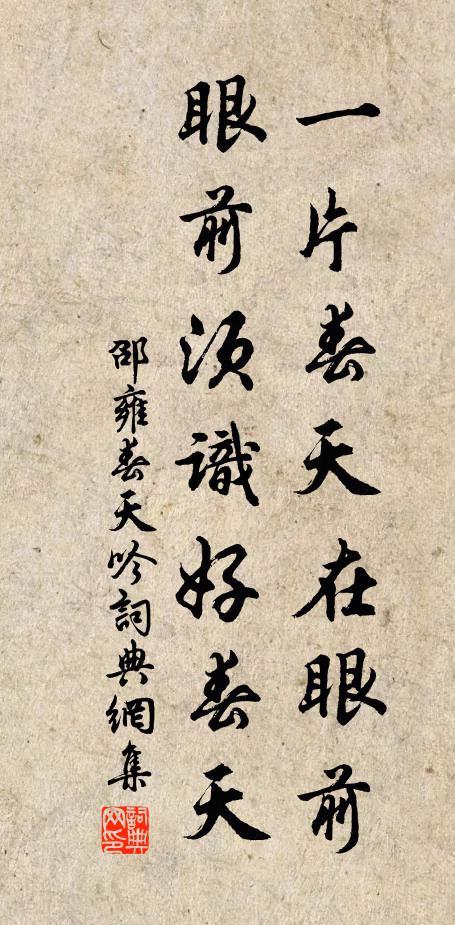 一片春天在眼前
眼前須識好春天
邵雍春天吟詞典網集
詞典网印